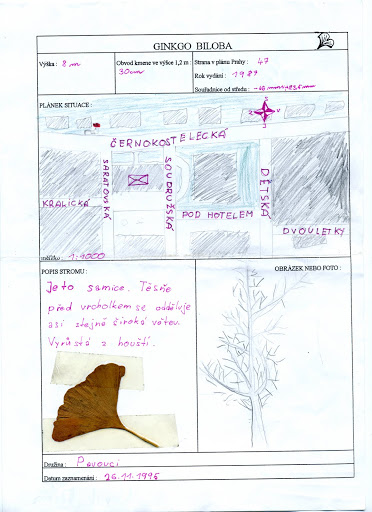 GINKGO BILOBA
Výška : 8 m
Obvod kmene ve výšce 1,2 m :
30cm
Strana v plánu Prahy : 47
Rok vydání : 1987
Souřadnice od středu :
PLÁNEK SITUACE :
ČERNOKOSTELECKÁ
SARATOVSKÁ
SOUDRUŽSKÁ
DĚTSKÁ
KRALICKÁ
POD HOTELEM
DVOULETKY
měřítko : 1:4000
POPIS STROMU :
Je to samice. Těsně
před vrcholkem se odděluje
asi stejně široká větev.
Vyrůstá z houští.
OBRÁZEK NEBO FOTO :
Družina : Pavouci
Datum zaznamenání : 26.11.1995